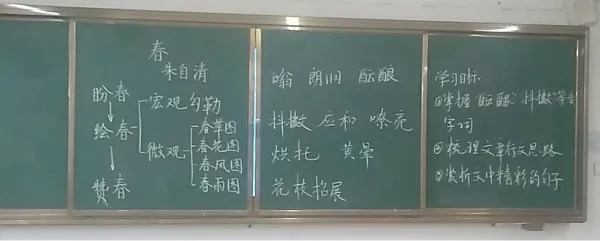 春
朱自清
盼春
宏观勾勒
绘春
微观
春草图
春花图
春风图
春雨图
赞春
嗡 朗 酝酿
抖擞 应和 嘹亮
烘托 黄晕
花枝招展
学习目标
①掌握“酝酿”“抖擞”等生
字词
②梳理文章行文思路
③赏析文中精彩的句子